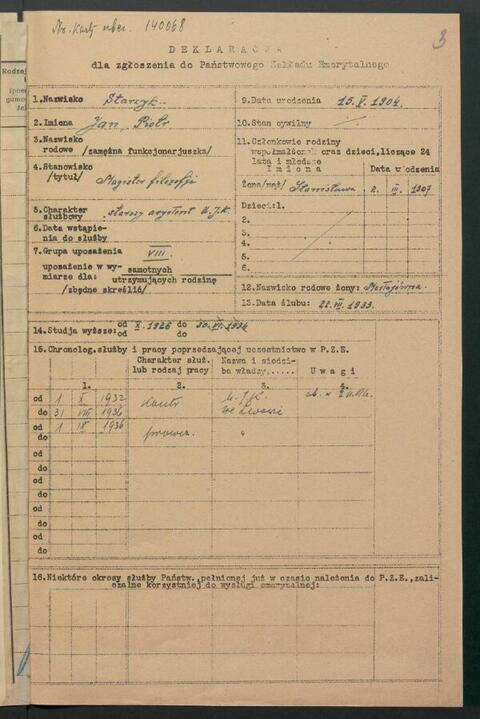 Nr. karty uber. 140068
3
DEKLARACJA
dla zgłoszenia do Państwowego Zakładu Emerytalnego
1.Nazwisko Starczyk
2.Imiona Jan, Piotr
3.Nazwisko
rodowe /zamężna funkcjonarjuszka/
4.Stanowisko
/tytuł/ Magister filozofii
5.Charakter
służbowy starszy asystent U.J.K.
6.Data wstąpie-
nia do służby
7.Grupa uposażenia VIII.
uposażenie w wy-
miarze dla: samotnych
utrzymujących rodzinę
/zbędne skreślić/
9.Data urodzenia 15.V.1904.
10.Stan cywilny
11.Członkowie rodziny
oraz dzieci, liczące 24
lata i młodsze
Imiona Data urodzenia
Żona/mąż/ Stanisława 2. III. 1907
Dzieci:1.
2.
3.
4.
5.
6.
12.Nazwisko rodowe żony:
13.Data ślubu: 22.VII.1933.
14.Studja wyższe: od X.1926 do 30.VI.1934
od do
15.Chronolog.służby i pracy poprzedzającej uczestnictwo w P.Z.E.
Charakter służ. lub rodzaj pracy
Nazwa i siedziba władzy,.....
Uwagi
1. 2. 3. 4.
od 1 X 1932 kontr U.J.K.
do 31 VIII 1936 we Lwowie
od 1 IX 1936 prowiz. "
do
od
do
od
do
od
do
od
do
16.Niektóre okresy służby Państw.,pełnionej już w czasie należenia do P.Z.E.,zali-
czalne korzystniej do wysługi emerytalnej: